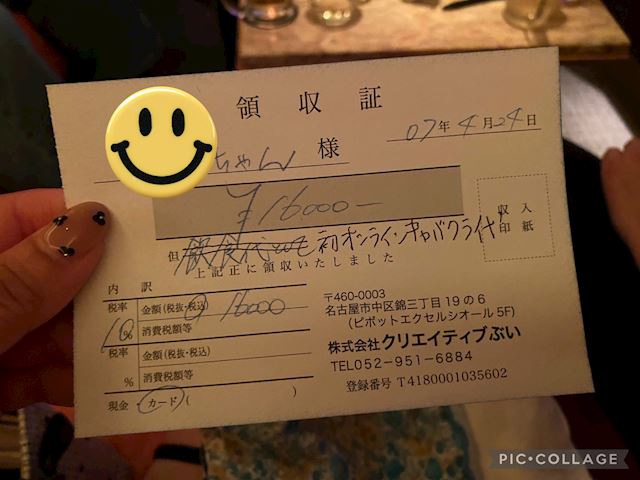 領収証
07年4月24日
ちゃん 様
¥16000-
但 飲食代として 初オンラインキャバクラ代
上記正に領収いたしました
収入
印紙
内 訳
税率 金額(税抜・税込) 16000
10% 消費税額等
税率 金額(税抜・税込)
% 消費税額等
現金・カード( )
〒460-0003
名古屋市中区錦三丁目19の6
(ピボットエクセルシオール5F)
株式会社クリエイティブぶい
TEL052-951-6884
登録番号 T4180001035602
PIC•COLLAGE